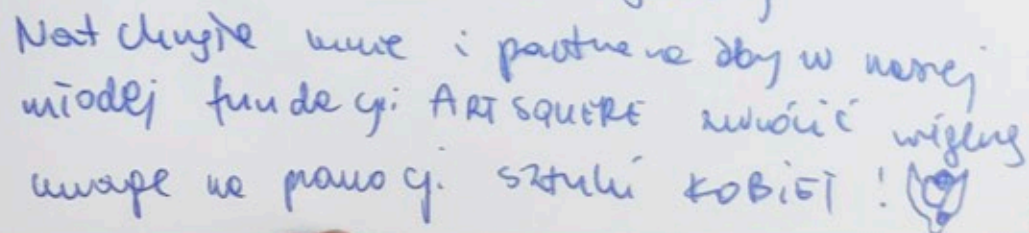 Natchnęła mnie i partnera aby w naszej
młodej fundacji ARTSQUERE zwrócić większą
uwagę na promocji sztuki KOBIET !